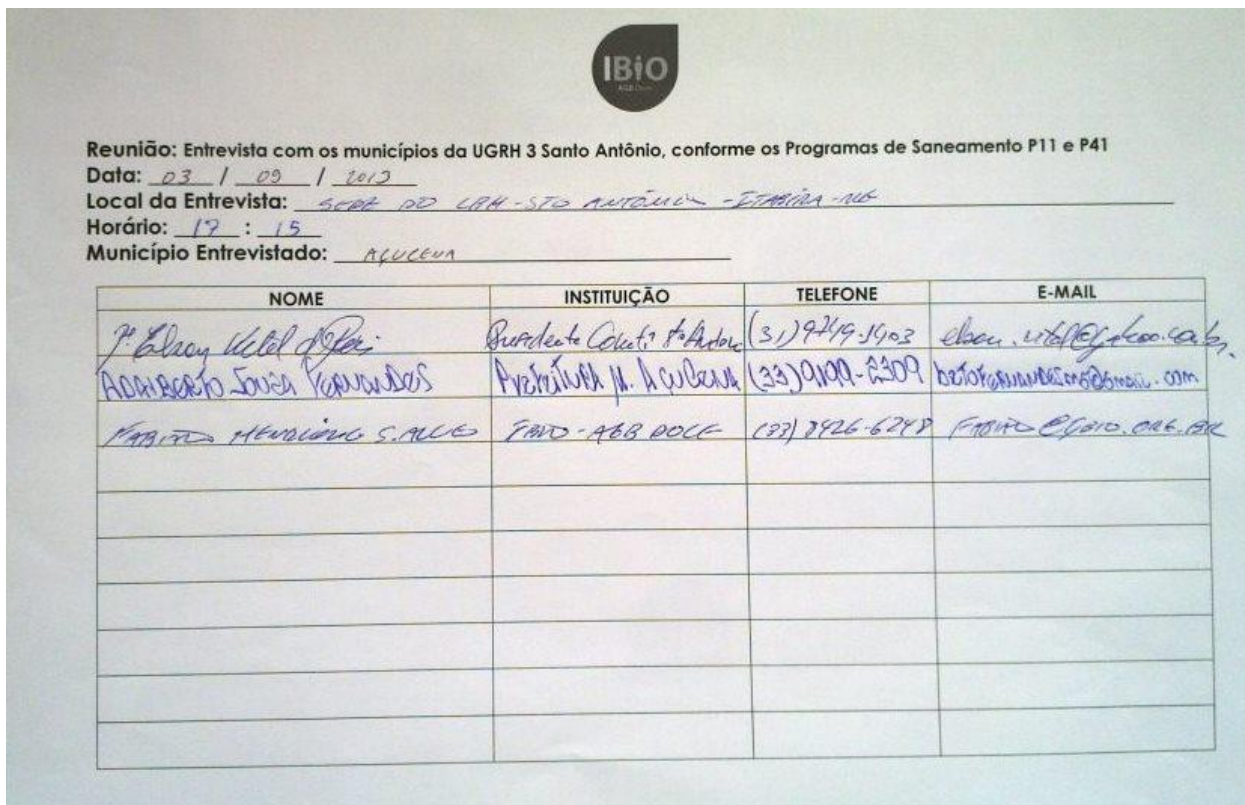 IBiO
AGB Doce
Reunião: Entrevista com os municípios da UGRH 3 Santo Antônio, conforme os Programas de Saneamento P11 e P41
Data: 03 / 09 / 2013
Local da Entrevista: SEDE DO CBH-STO ANTÔNIO - ITABIRA-MG
Horário: 17 : 15
Município Entrevistado: AÇUCENA
NOME INSTITUIÇÃO TELEFONE E-MAIL
Presidente (31) 9749-1403
ADALBERTO SOUZA FERNANDES Prefeitura M. Açucena (33) 9199-2309 betofernandesmg@gmail.com
FABIANO HENRIQUE S. ALVES IBIO - AGB DOCE (33) 8426-6248 FABIANO@IBIO.ORG.BR